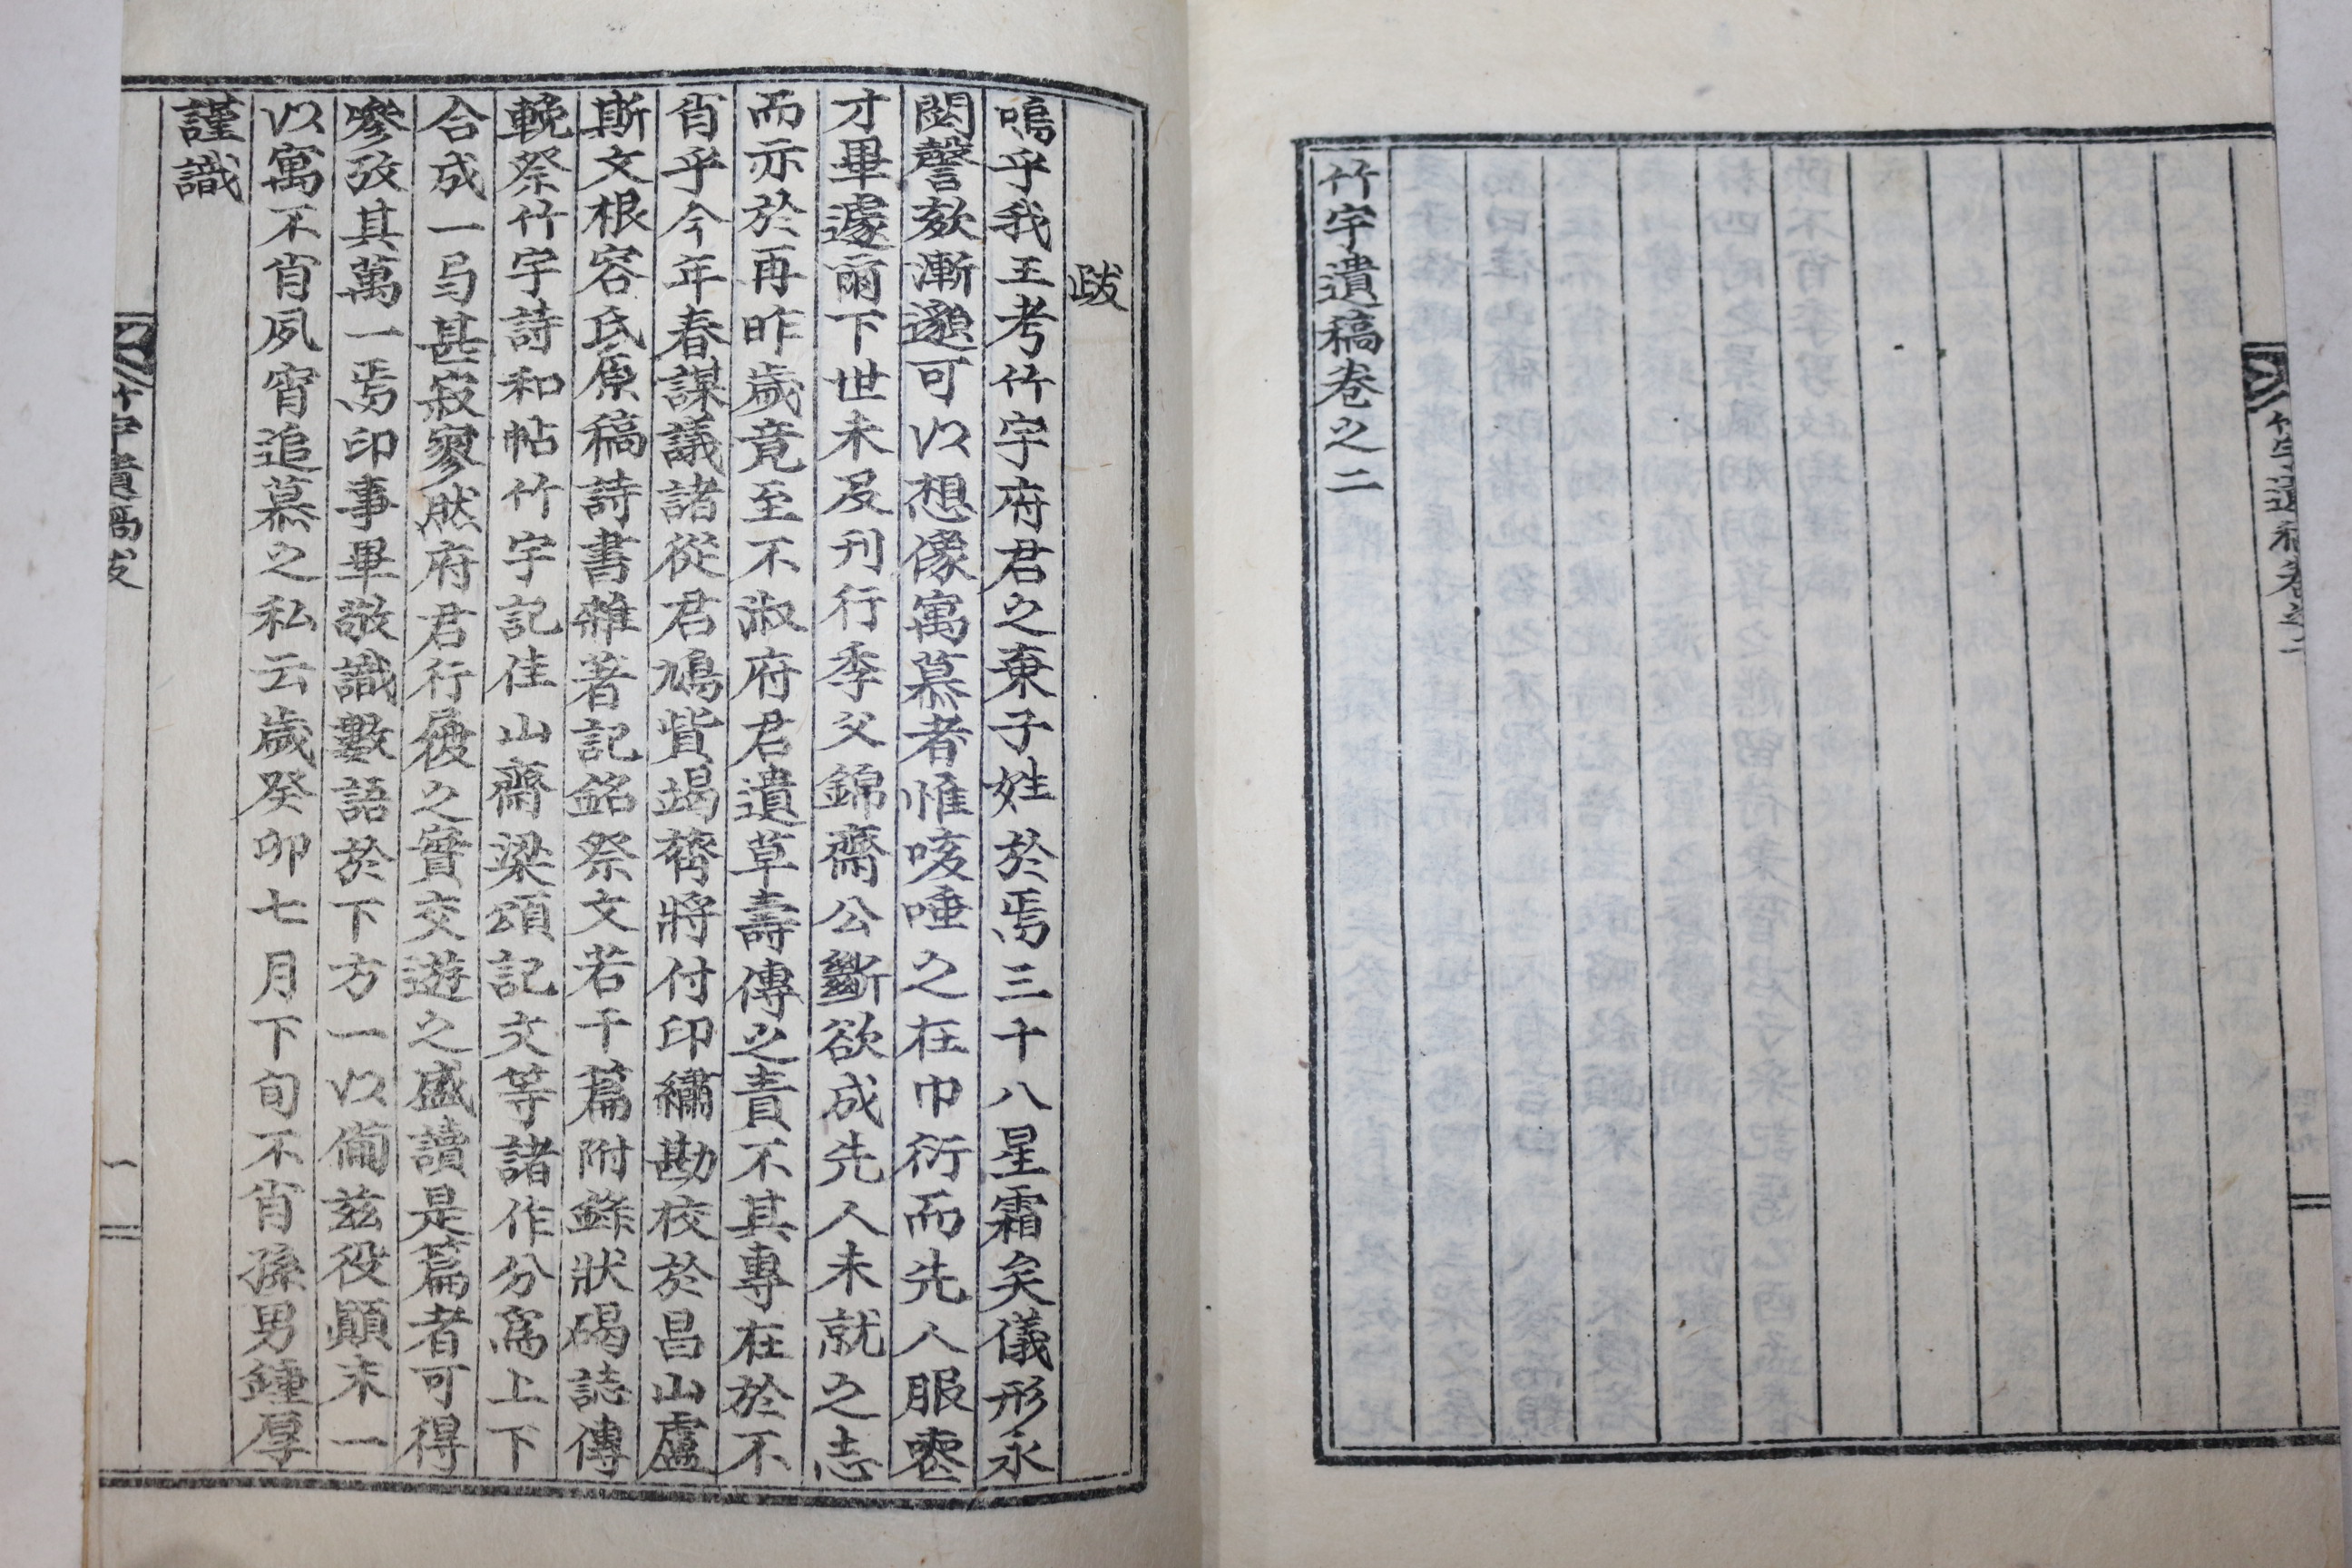 竹宇遺稿卷之二
竹宇遺稿卷之二
跋
嗚乎我王考竹宇府君之棄子姓於焉三十八星霜矣儀形永
閟謦欬漸邈可以想像寓慕者惟咳唾之在巾衍而先人服闋
才畢遽爾下世未及刊行季父錦齋公斷欲成先人未就之志
而亦於再昨歲竟至不淑府君遺草壽傳之責不其專在於不
肖乎今年春謀議諸從君鳩貲竭膂將付印繡勘校於昌山盧
斯文根容氏原稿詩書雜著記銘祭文若干篇附錄狀碣誌傳
輓祭竹宇詩和帖竹宇記佳山齋梁頌記文等諸作分爲上下
合成一弓甚寂寥然府君行履之實交遊之盛讀是篇者可得
叅攷其萬一焉印事畢敬識數語於下方一以備玆役顚末一
以寓不肖夙宵追慕之私云歲癸卯七月下旬不肖孫男鍾厚
謹識
竹宇遺稿跋
一